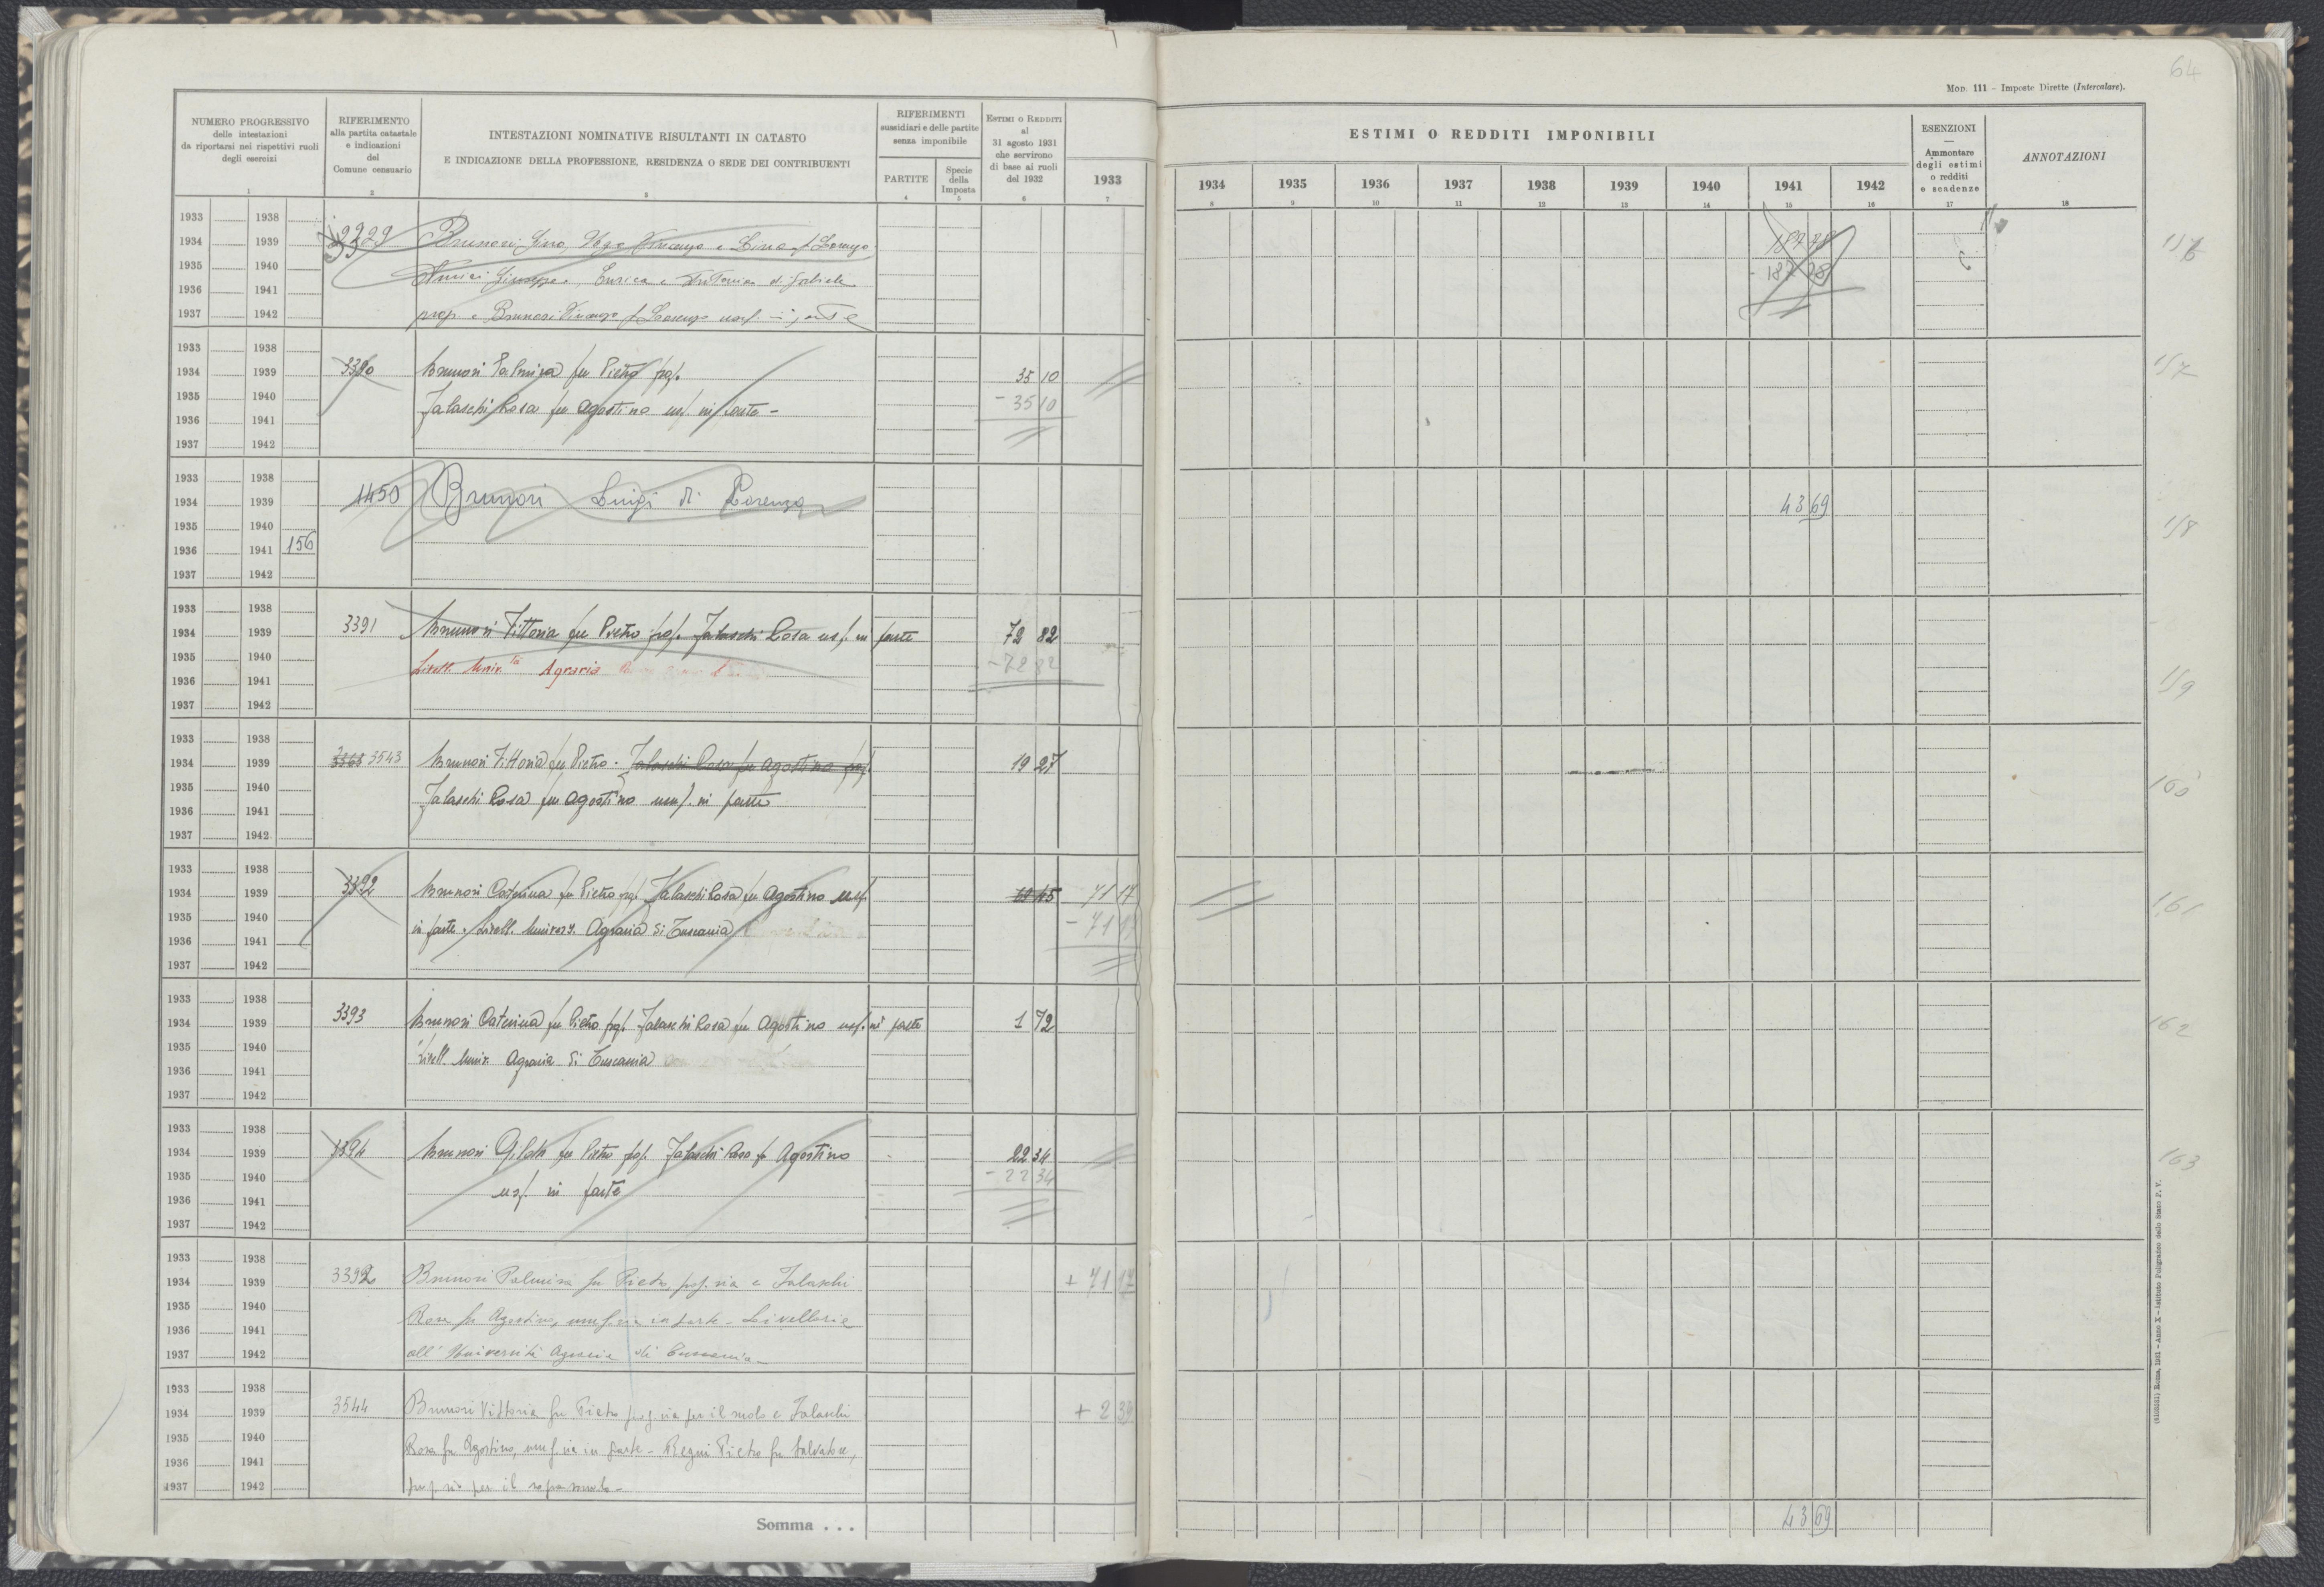 64
Mod. 111 - Imposte Dirette (Intercalare).
NUMERO PROGRESSIVO
delle intestazioni
da riportarsi nei rispettivi ruoli
degli esercizi
1
RIFERIMENTO
alla partita catastale
e indicazioni
del
Comune censuario
2
INTESTAZIONI NOMINATIVE RISULTANTI IN CATASTO
E INDICAZIONE DELLA PROFESSIONE, RESIDENZA O SEDE DEI CONTRIBUENTI
3
RIFERIMENTI
sussidiari e delle partite
senza imponibile
PARTITE
4
Specie
della
Imposta
5
ESTIMI O REDDITI
al
31 agosto 1931
che servirono
di base ai ruoli
del 1932
6
1933
7
ESTIMI O REDDITI IMPONIBILI
1934 1935 1936 1937 1938 1939 1940 1941 1942
8 9 10 11 12 13 14 15 16
ESENZIONI
Ammontare
degli estimi
o redditi
e scadenze
17
ANNOTAZIONI
18
1933 1938
1934 1939 Brunori Gino, Vincenzo e Lina f Lorenzo
1935 1940 Giuseppe, Enrica e Antonina di Gabriele
1936 1941
1937 1942 prop. e Brunori Vincenzo f Lorenzo usuf. in parte
1933 1938
1934 1939 3390 Brunori Palmira fu Pietro prop. 35 10 157
1935 1940 Jalaschi Rosa fu Agostino usf. in parte - - 35 10
1936 1941
1937 1942
1933 1938
1934 1939 1450 Brunori Luigi di Lorenzo 43 69
1935 1940 158
1936 1941 156
1937 1942
1933 1938
1934 1939 3391 Brunori Vittoria fu Pietro prop. Jalaschi Rosa usf. in parte 72 82
1935 1940 Livell. Univ.tà Agraria - 72 82
1936 1941 159
1937 1942
1933 1938
1934 1939 3543 Brunori Vittoria fu Pietro. Jalaschi Rosa fu Agostino 19 27
1935 1940 Jalaschi Rosa fu Agostino usuf. in parte 160
1936 1941
1937 1942
1933 1938
1934 1939 3392 Brunori Caterina fu Pietro prop. Jalaschi Rosa fu Agostino usuf. 71 17 161
1935 1940 in parte. Livell. Univers. Agraria di Tuscania - 71 17
1936 1941
1937 1942
1933 1938
1934 1939 3393 Brunori Caterina fu Pietro prop. Jalaschi Rosa fu Agostino usf. in parte 1 72 162
1935 1940 Livell. Univ. Agraria di Tuscania
1936 1941
1937 1942
1933 1938
1934 1939 3394 Brunori Gilda fu Pietro prop. Jalaschi Rosa fu Agostino 22 34 163
1935 1940 usf. in parte - 22 34
1936 1941
1937 1942
1933 1938
1934 1939 3392 Brunori Palmira fu Pietro, prop.ria e Jalaschi + 71 17
1935 1940 Rosa fu Agostino, usuf.ria in parte - Livellaria
1936 1941
1937 1942 all'Università Agraria di Tuscania -
1933 1938
1934 1939 3544 Brunori Vittoria fu Pietro prop.ria per il suolo e Jalaschi + 2 39
1935 1940 Rosa fu Agostino, usuf.ria in parte - Begni Pietro fu Salvatore,
1936 1941
1937 1942 prop.rio per il soprasuolo -
Somma . . . 43 69
(4103531) Roma, 1931 - Anno X - Istituto Poligrafico dello Stato P. V.